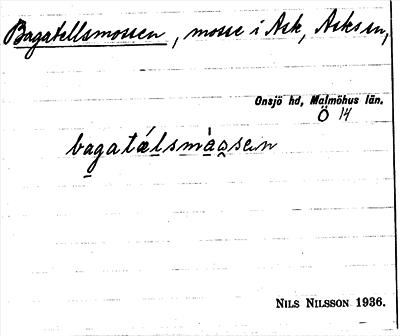 Bagatellsmossen, mosse i Ask, Asks sn,
Onsjö hd, Malmöhus län.
Ö 14
bagatǽlsmàɑ̯sen
NILS NILSSON 1936.